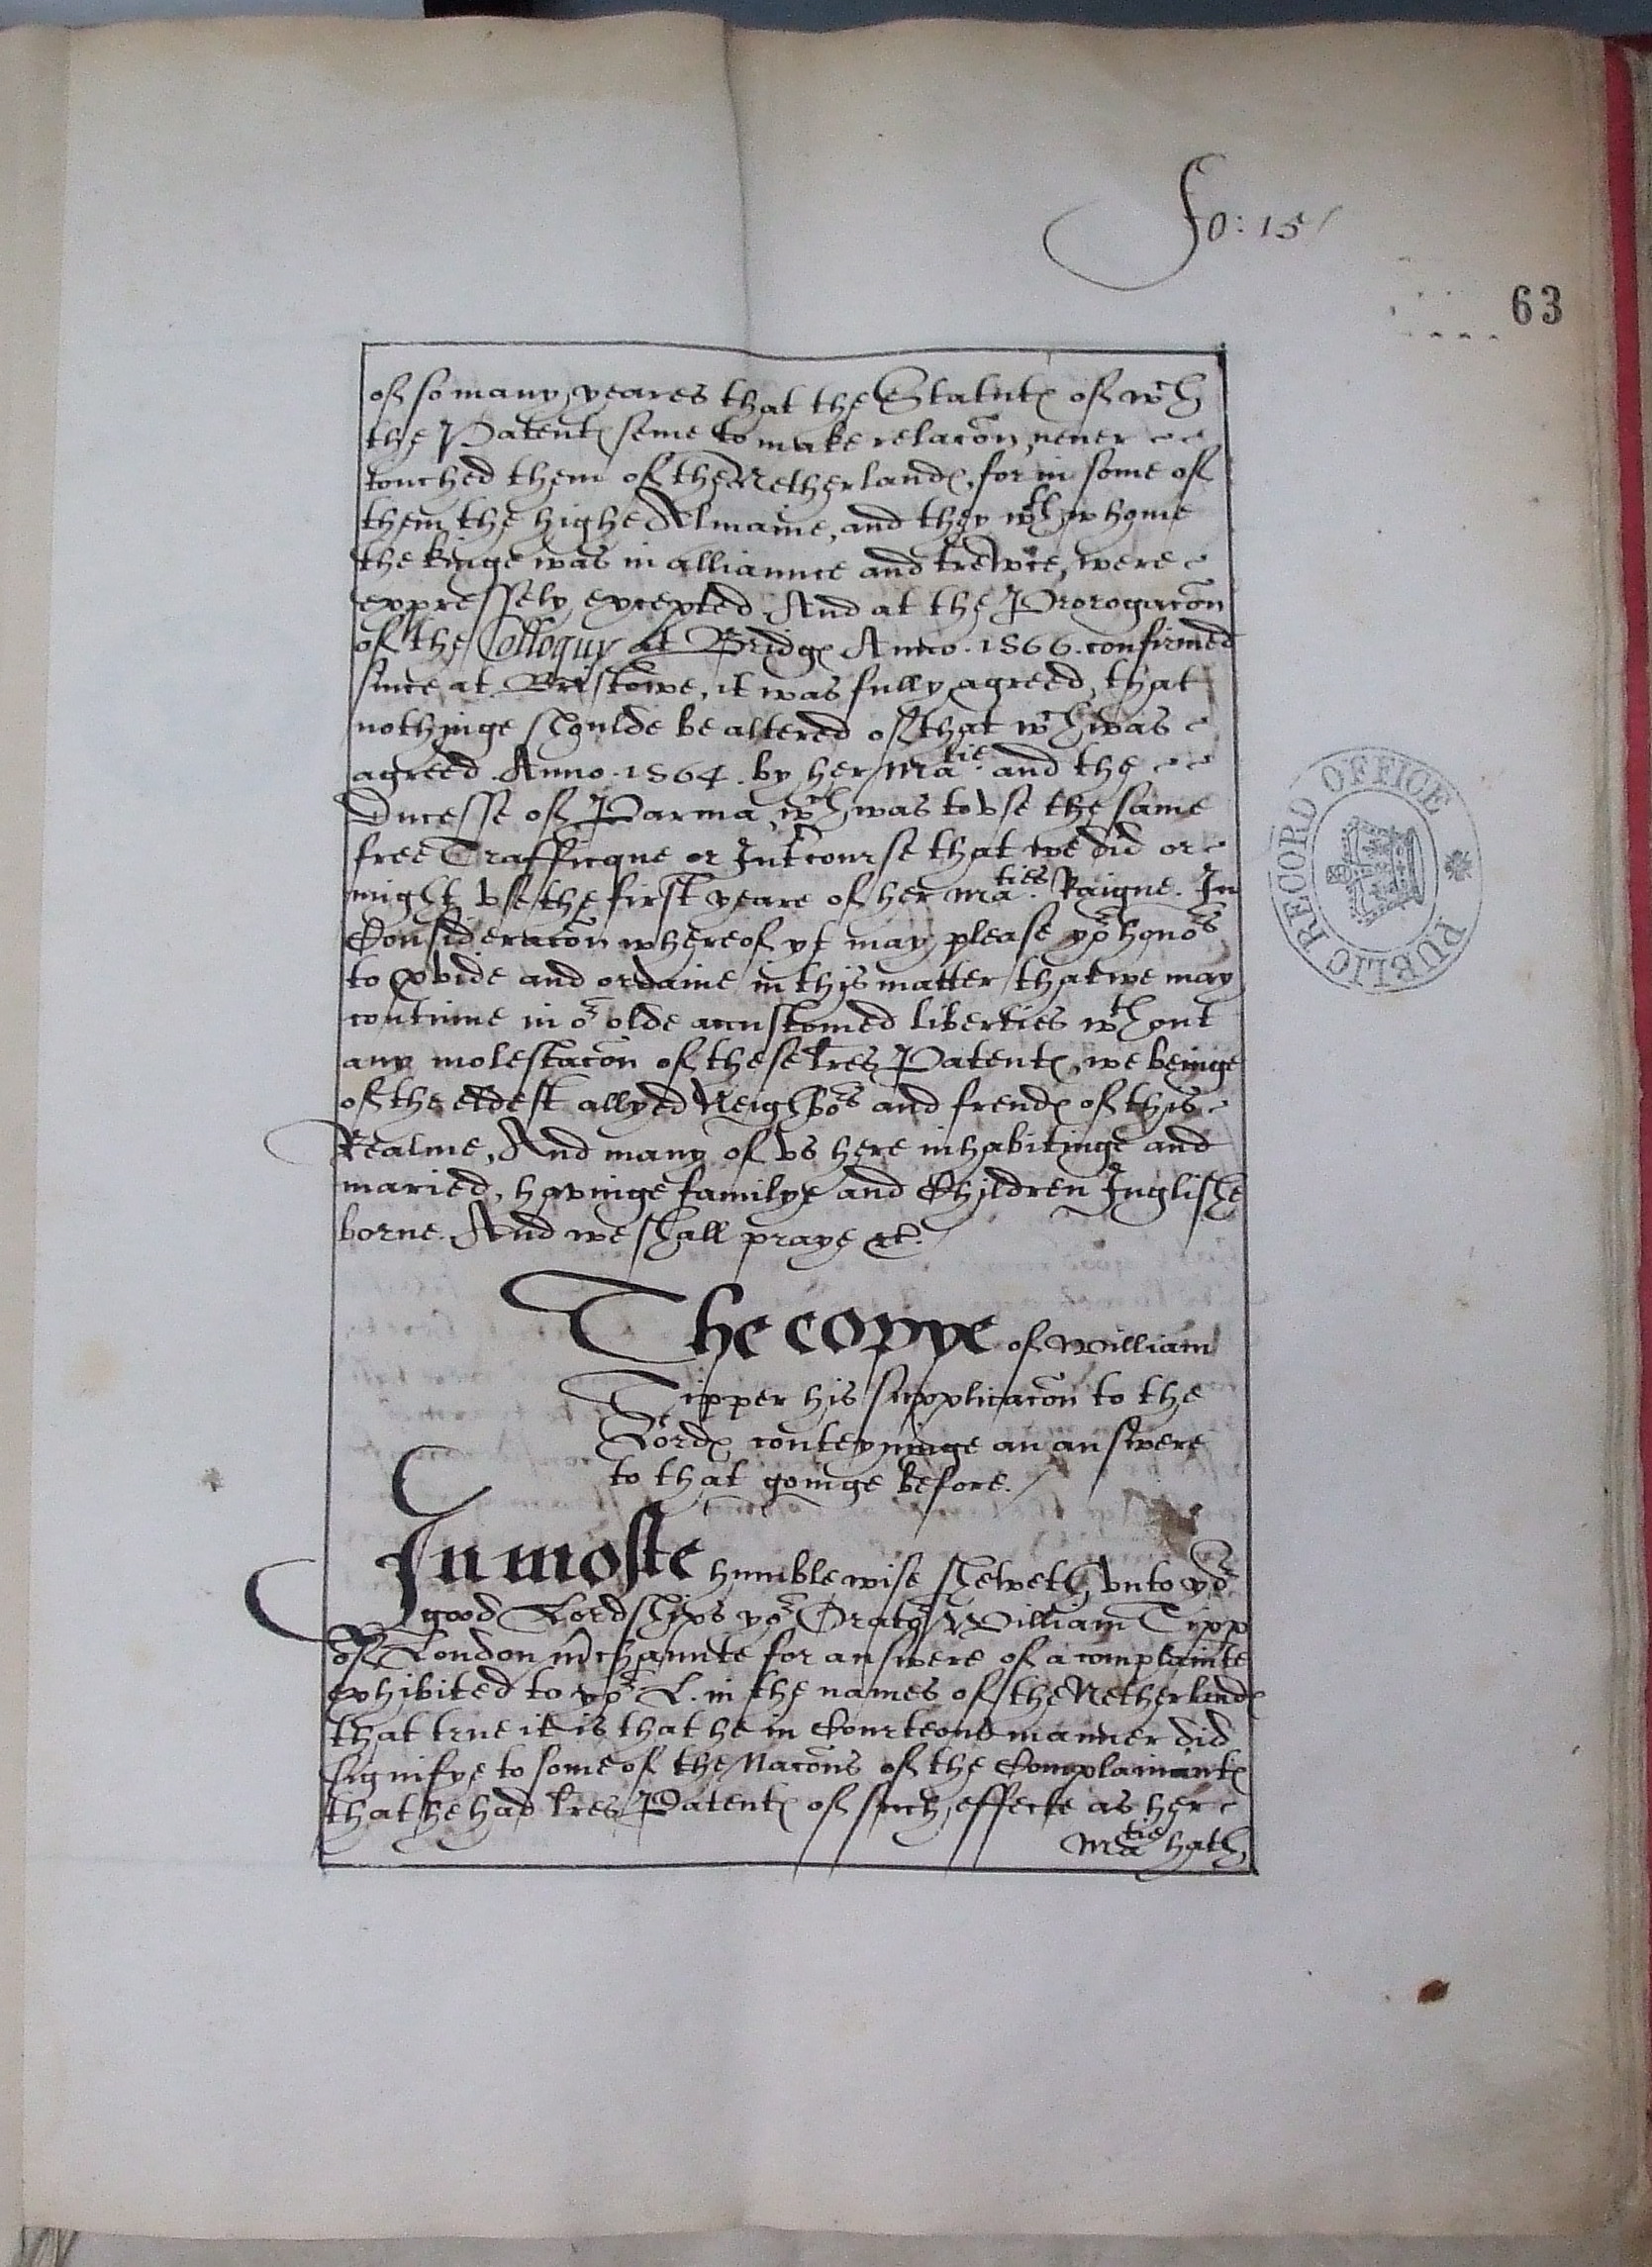 fo: 15
63
of so many yeares that the Statutes of wch
the Patentes seme to make relacõn, never
touched them of the Netherlandes, for in some of
them the highe Almaine, and they wth whome
the kinge was in alliaunce and trewce, were
expressely excepted. And at the Prorogacõn
of the Colloquy at Bridges Anno. 1566. confirmed
since at Bristowe, it was fully agreed, that
nothinge shoulde be altered of that wch was
agreed Anno. 1564. by her Matie. and the
Ducesse of Parma, wch was to vse the same
free Trafficque or Intcourse that we did or
might vse the first yeare of her Maties. Raigne. In
Consideracõn whereof yt may please yor honors
to pvide and ordaine in this matter that we may
continue in or olde accustomed liberties wthout
any molestacõn of these lres Patentes, we beinge
of the eldest allyed Neighbors and frendes of this
Realme, And many of vs here inhabitinge and
maried, havinge familye and Children Inglishe
borne. And we shall praye &c.
The copye of William
Tipper his supplicacõn to the
Lordes conteyninge an answere
to that goinge before.
In moste humble wise sheweth vnto yor
good Lordships yor Orator William Tipp
of London mchaunte for answere of a complainte
exhibited to yor L. in the names of the Netherlandes
that true it is that he in Courteous manner did
signifye to some of the Nacõns of the Complainantes
that he had lres Patentes of such effecte as her
Matie hath
PUBLIC RECORD OFFICE